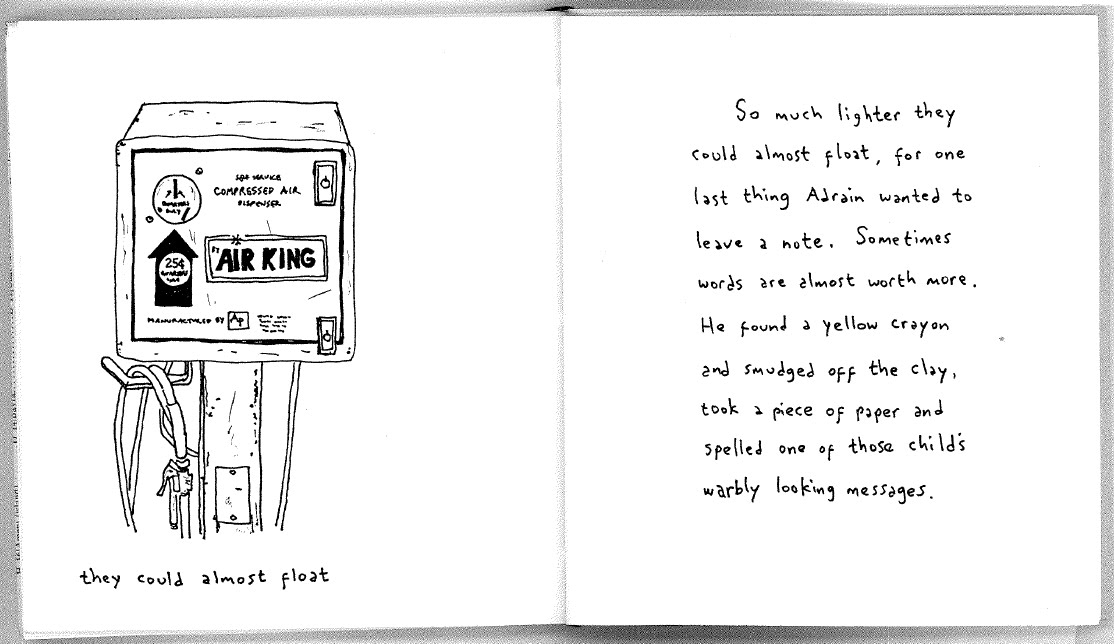 SELF SERVICE
COMPRESSED AIR
DISPENSER
AIR KING
25¢
MANUFACTURED BY Ap
they could almost float
So much lighter they
could almost float, for one
last thing Adrain wanted to
leave a note. Sometimes
words are almost worth more.
He found a yellow crayon
and smudged off the clay,
took a piece of paper and
spelled one of those child's
warbly looking messages.